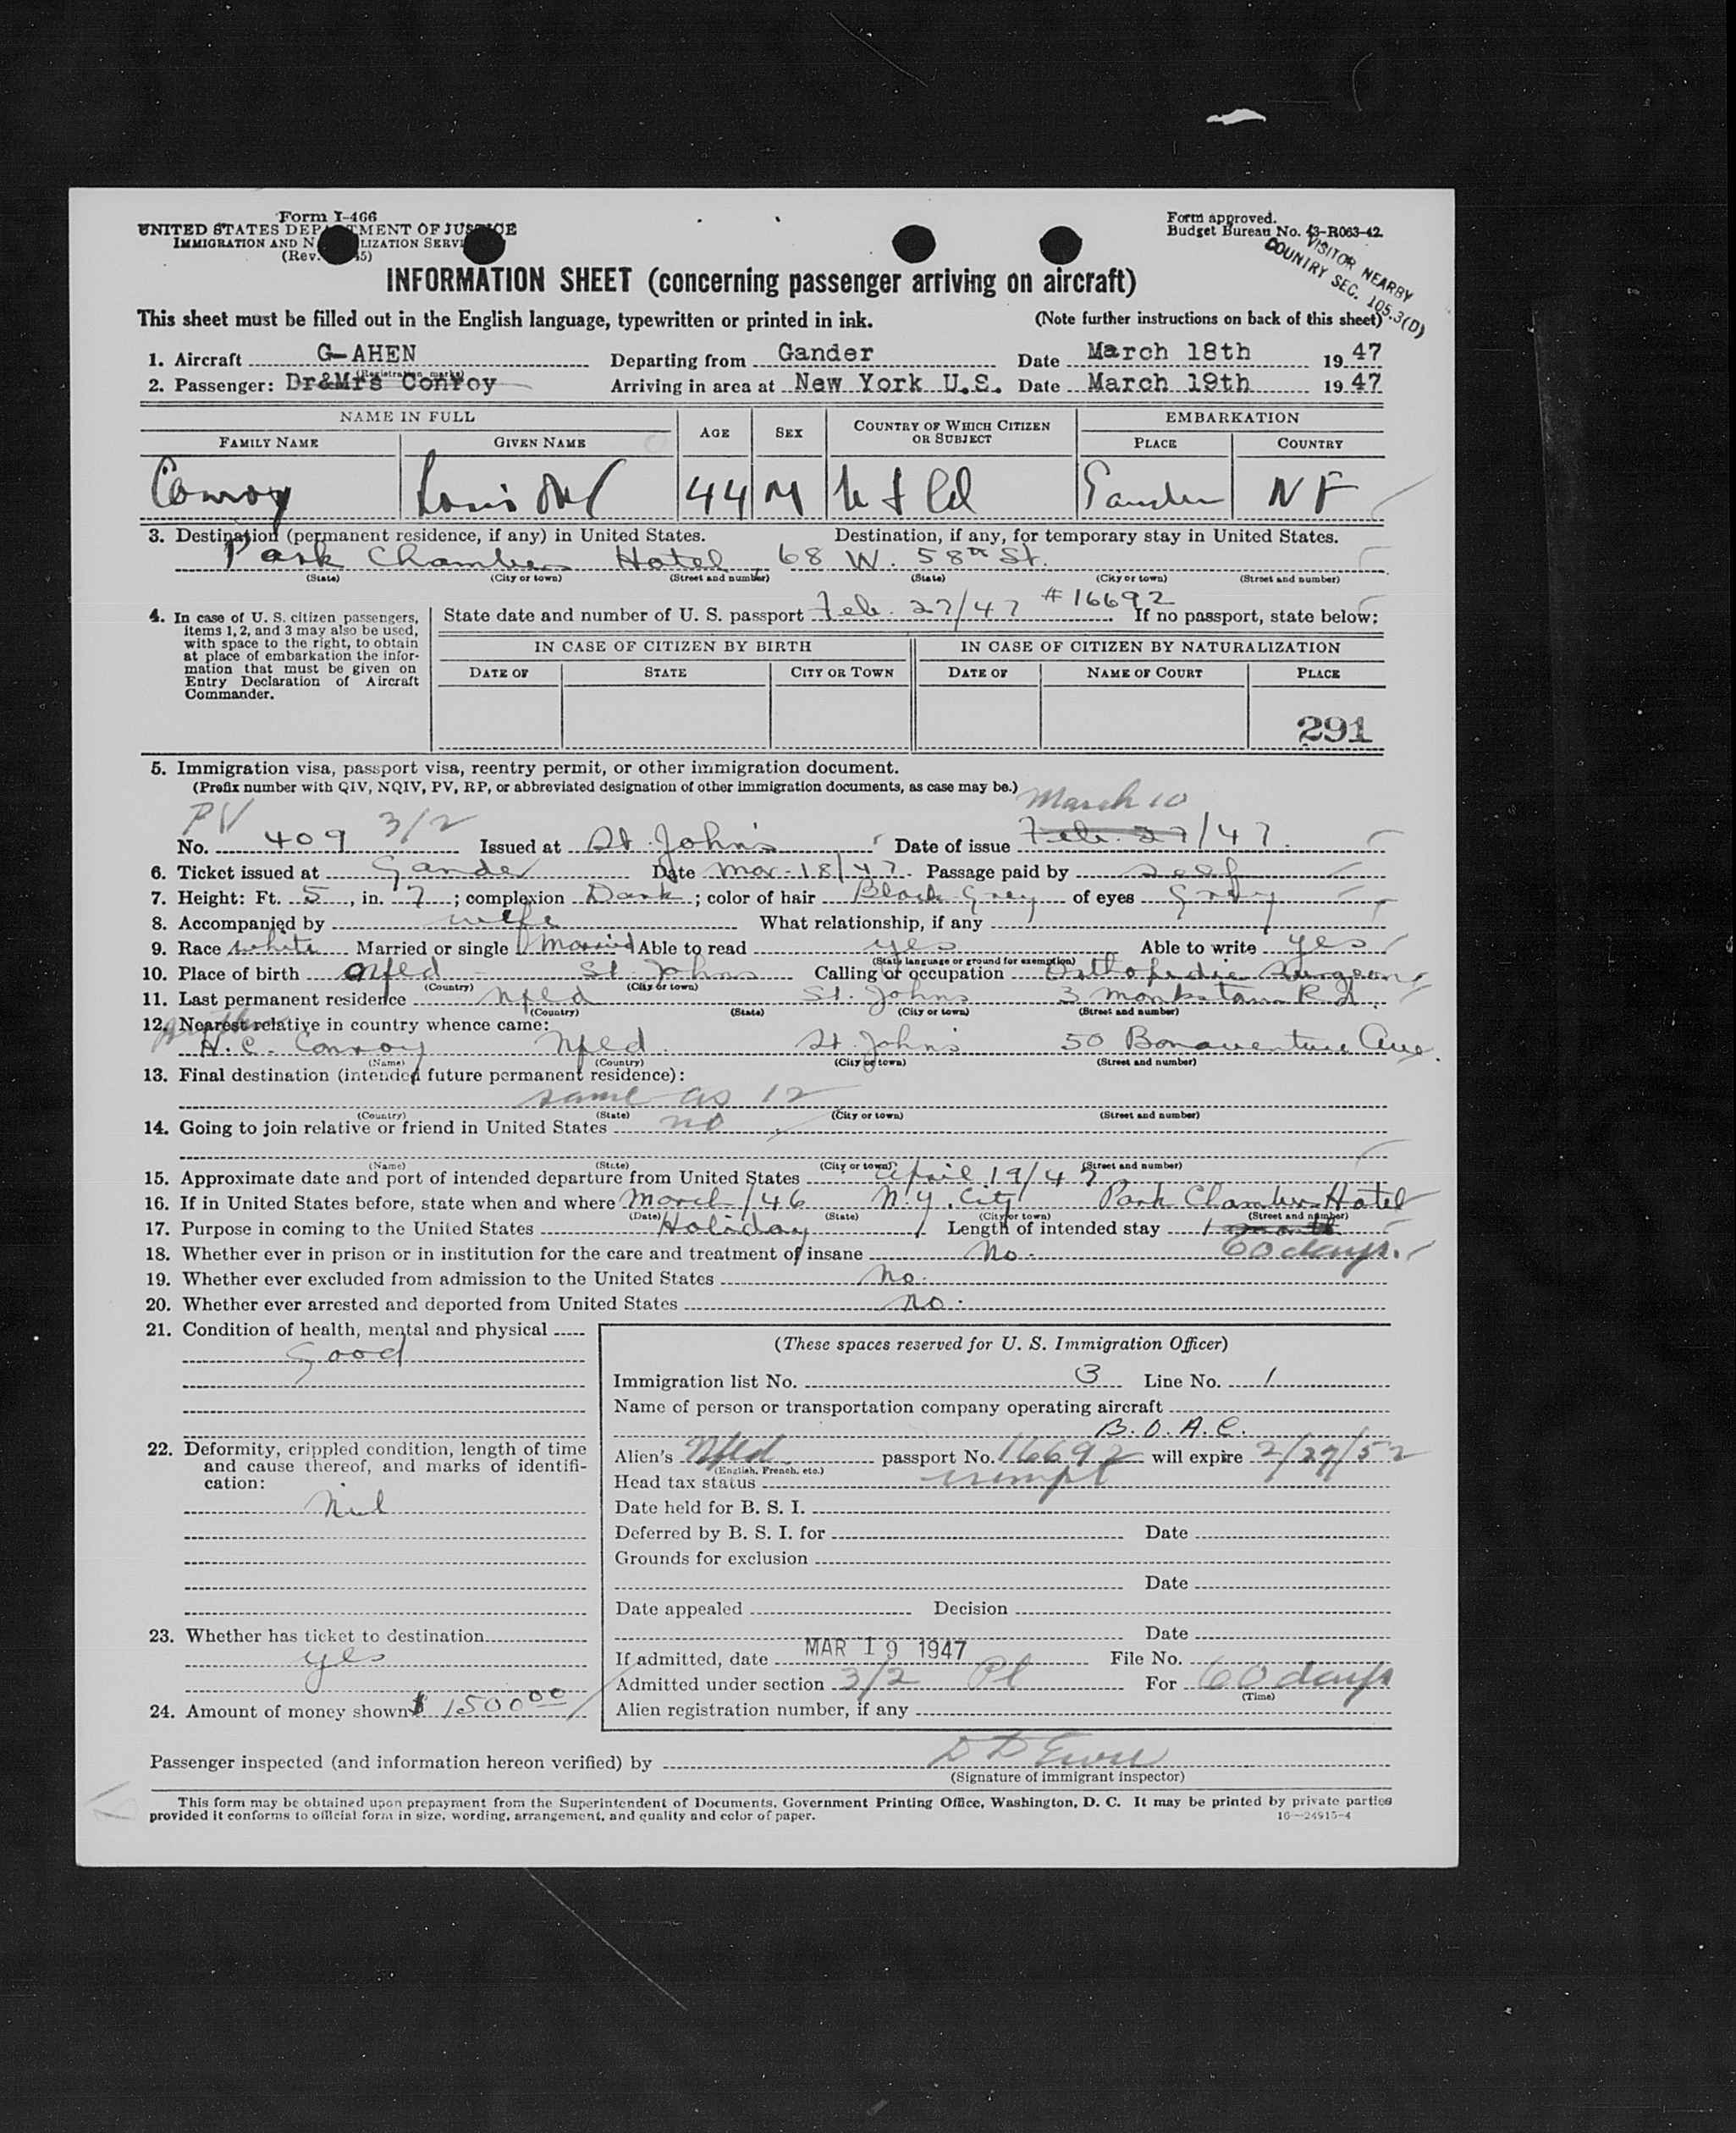 Form I-466
UNITED STATES DEPARTMENT OF JUSTICE
IMMIGRATION AND NATURALIZATION SERVICE
(Rev. 45)
Form approved.
Budget Bureau No. 43-R063-42
VISITOR NEARBY
COUNTRY SEC. 105.3(D)
INFORMATION SHEET (concerning passenger arriving on aircraft)
This sheet must be filled out in the English language, typewritten or printed in ink. (Note further instructions on back of this sheet)
1. Aircraft G-AHEN Departing from Gander Date March 18th 1947
(Registration marks)
2. Passenger: Dr&Mrs Conroy Arriving in area at New York U.S. Date March 19th 1947
NAME IN FULL AGE SEX COUNTRY OF WHICH CITIZEN OR SUBJECT EMBARKATION
FAMILY NAME GIVEN NAME PLACE COUNTRY
Conroy Louis 44 M Nfld Gander NF
3. Destination (permanent residence, if any) in United States. Destination, if any, for temporary stay in United States.
Park Chambers Hotel, 68 W. 58th St.
(State) (City or town) (Street and number) (State) (City or town) (Street and number)
4. In case of U. S. citizen passengers, items 1, 2, and 3 may also be used, with space to the right, to obtain at place of embarkation the information that must be given on Entry Declaration of Aircraft Commander.
State date and number of U. S. passport Feb. 27/47 #16692 If no passport, state below:
IN CASE OF CITIZEN BY BIRTH IN CASE OF CITIZEN BY NATURALIZATION
DATE OF STATE CITY OR TOWN DATE OF NAME OF COURT PLACE
291
5. Immigration visa, passport visa, reentry permit, or other immigration document.
(Prefix number with QIV, NQIV, PV, RP, or abbreviated designation of other immigration documents, as case may be.)
March 10
PV
No. 409 3/2 Issued at St. John's Date of issue Feb. 27/47
6. Ticket issued at Gander Date Mar-18/47. Passage paid by self
7. Height: Ft. 5, in. 7; complexion Dark; color of hair Black-Grey of eyes Grey
8. Accompanied by wife What relationship, if any
9. Race white Married or single Married Able to read yes Able to write yes
(State language or ground for exemption)
10. Place of birth Nfld St. Johns Calling or occupation Orthopedic Surgeon
(Country) (City or town)
11. Last permanent residence Nfld St. Johns 3 Monkstown Rd.
(Country) (State) (City or town) (Street and number)
12. Nearest relative in country whence came:
H. C. Conroy Nfld. St. John's 50 Bonaventure Ave.
(Name) (Country) (City or town) (Street and number)
13. Final destination (intended future permanent residence):
same as 12
(Country) (State) (City or town) (Street and number)
14. Going to join relative or friend in United States no
(Name) (State) (City or town) (Street and number)
15. Approximate date and port of intended departure from United States April 19/47
16. If in United States before, state when and where March/46 N.Y. City Park Chambers Hotel
(Date) (State) (City or town) (Street and number)
17. Purpose in coming to the United States Holiday Length of intended stay 1 month
60 days.
18. Whether ever in prison or in institution for the care and treatment of insane No.
19. Whether ever excluded from admission to the United States No.
20. Whether ever arrested and deported from United States No.
21. Condition of health, mental and physical
Good
22. Deformity, crippled condition, length of time and cause thereof, and marks of identification:
Nil
23. Whether has ticket to destination
yes
24. Amount of money shown $1500.00
(These spaces reserved for U. S. Immigration Officer)
Immigration list No. 3 Line No. 1
Name of person or transportation company operating aircraft
B.O.A.C.
Alien's Nfld passport No. 16692 will expire 2/27/52
(English, French, etc.)
Head tax status exempt
Date held for B. S. I.
Deferred by B. S. I. for Date
Grounds for exclusion
Date
Date appealed Decision
Date
If admitted, date MAR 19 1947 File No.
Admitted under section 3/2 Pl For 60 days
(Time)
Alien registration number, if any
Passenger inspected (and information hereon verified) by
(Signature of immigrant inspector)
This form may be obtained upon prepayment from the Superintendent of Documents, Government Printing Office, Washington, D. C. It may be printed by private parties
provided it conforms to official form in size, wording, arrangement, and quality and color of paper. 16—24915-4